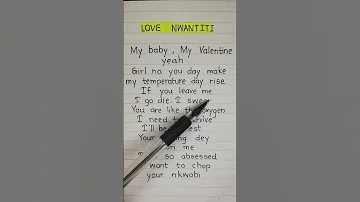 LOVE NWANTITI
My baby, My Valentine
yeah
Girl na you day make
my temperature day rise
If you leave me
I go die, I swear
You are like the oxygen
I need to
I'll be
Your dey
me
so obsessed
want to chop
your nkwobi